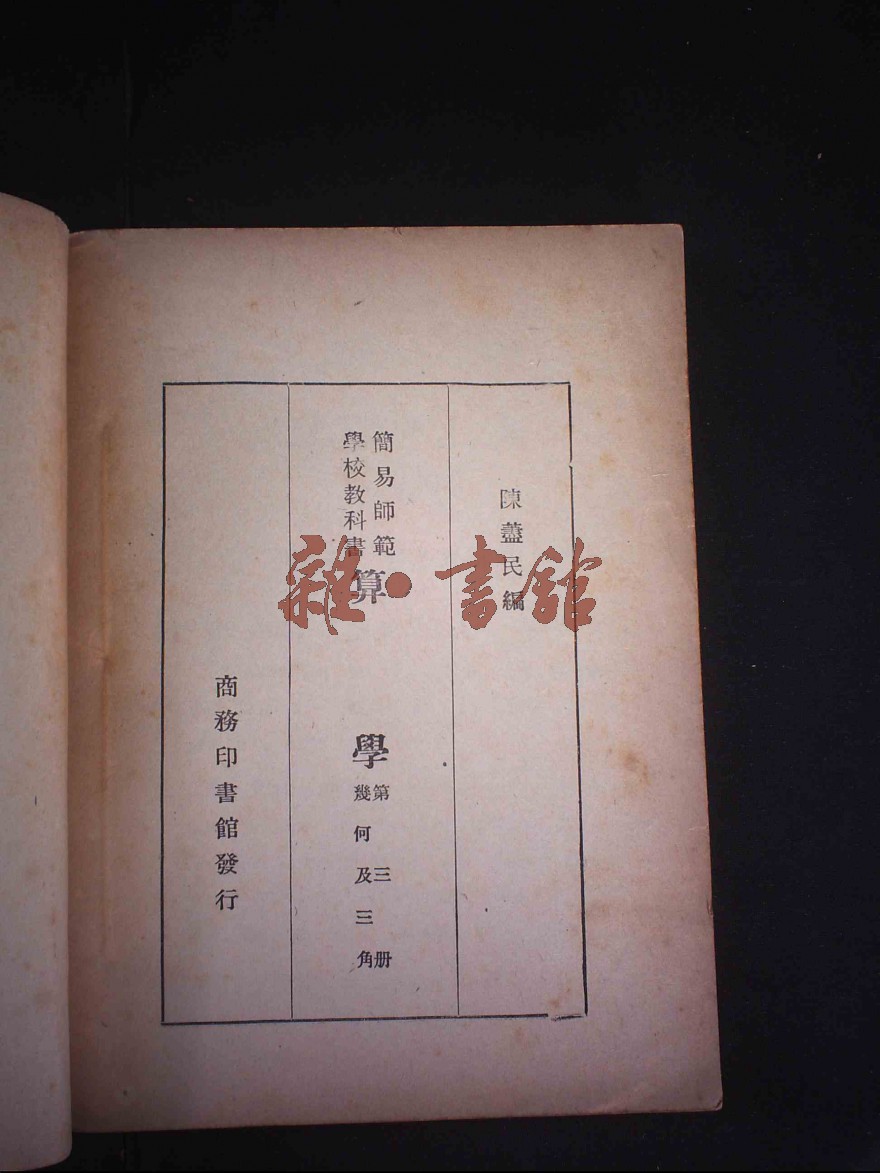 陳藎民編
簡易師範
學校教科書
算學
第三册
幾何及三角
商務印書館發行
雜·書館